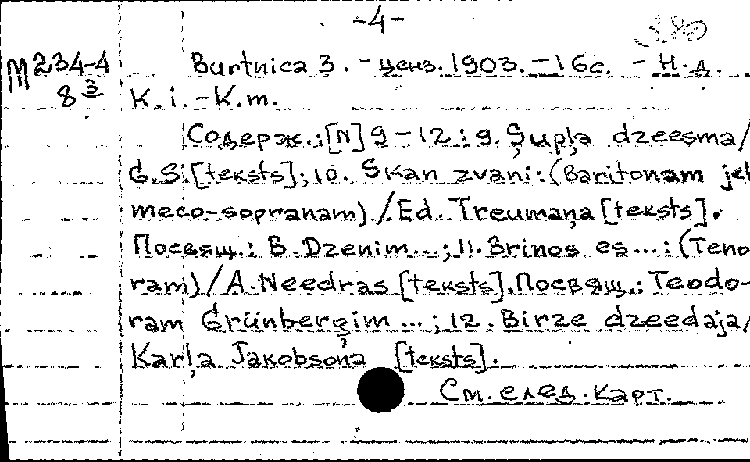 -4-
M 234-4 Burtnica 3. - ценз. 1903. - 16с. - Н.д.
8 3 K.i. - K.m.
Содерж.: [N] 9-12: 9. Şupļa dzeesma/
G.S. [teksts]; 10. Skan zvani: (Baritonam jeb
meco-sopranam)/Ed. Treumaņa [teksts].
Посвящ.: B. Dzenim...; 11. Brinos es...: (Teno-
ram)/A. Needras [teksts]. Посвящ.: Teodo-
ram Grünberģim...; 12. Birze dzeedaja/
Karļa Jakobsona [teksts].
См. след. карт.